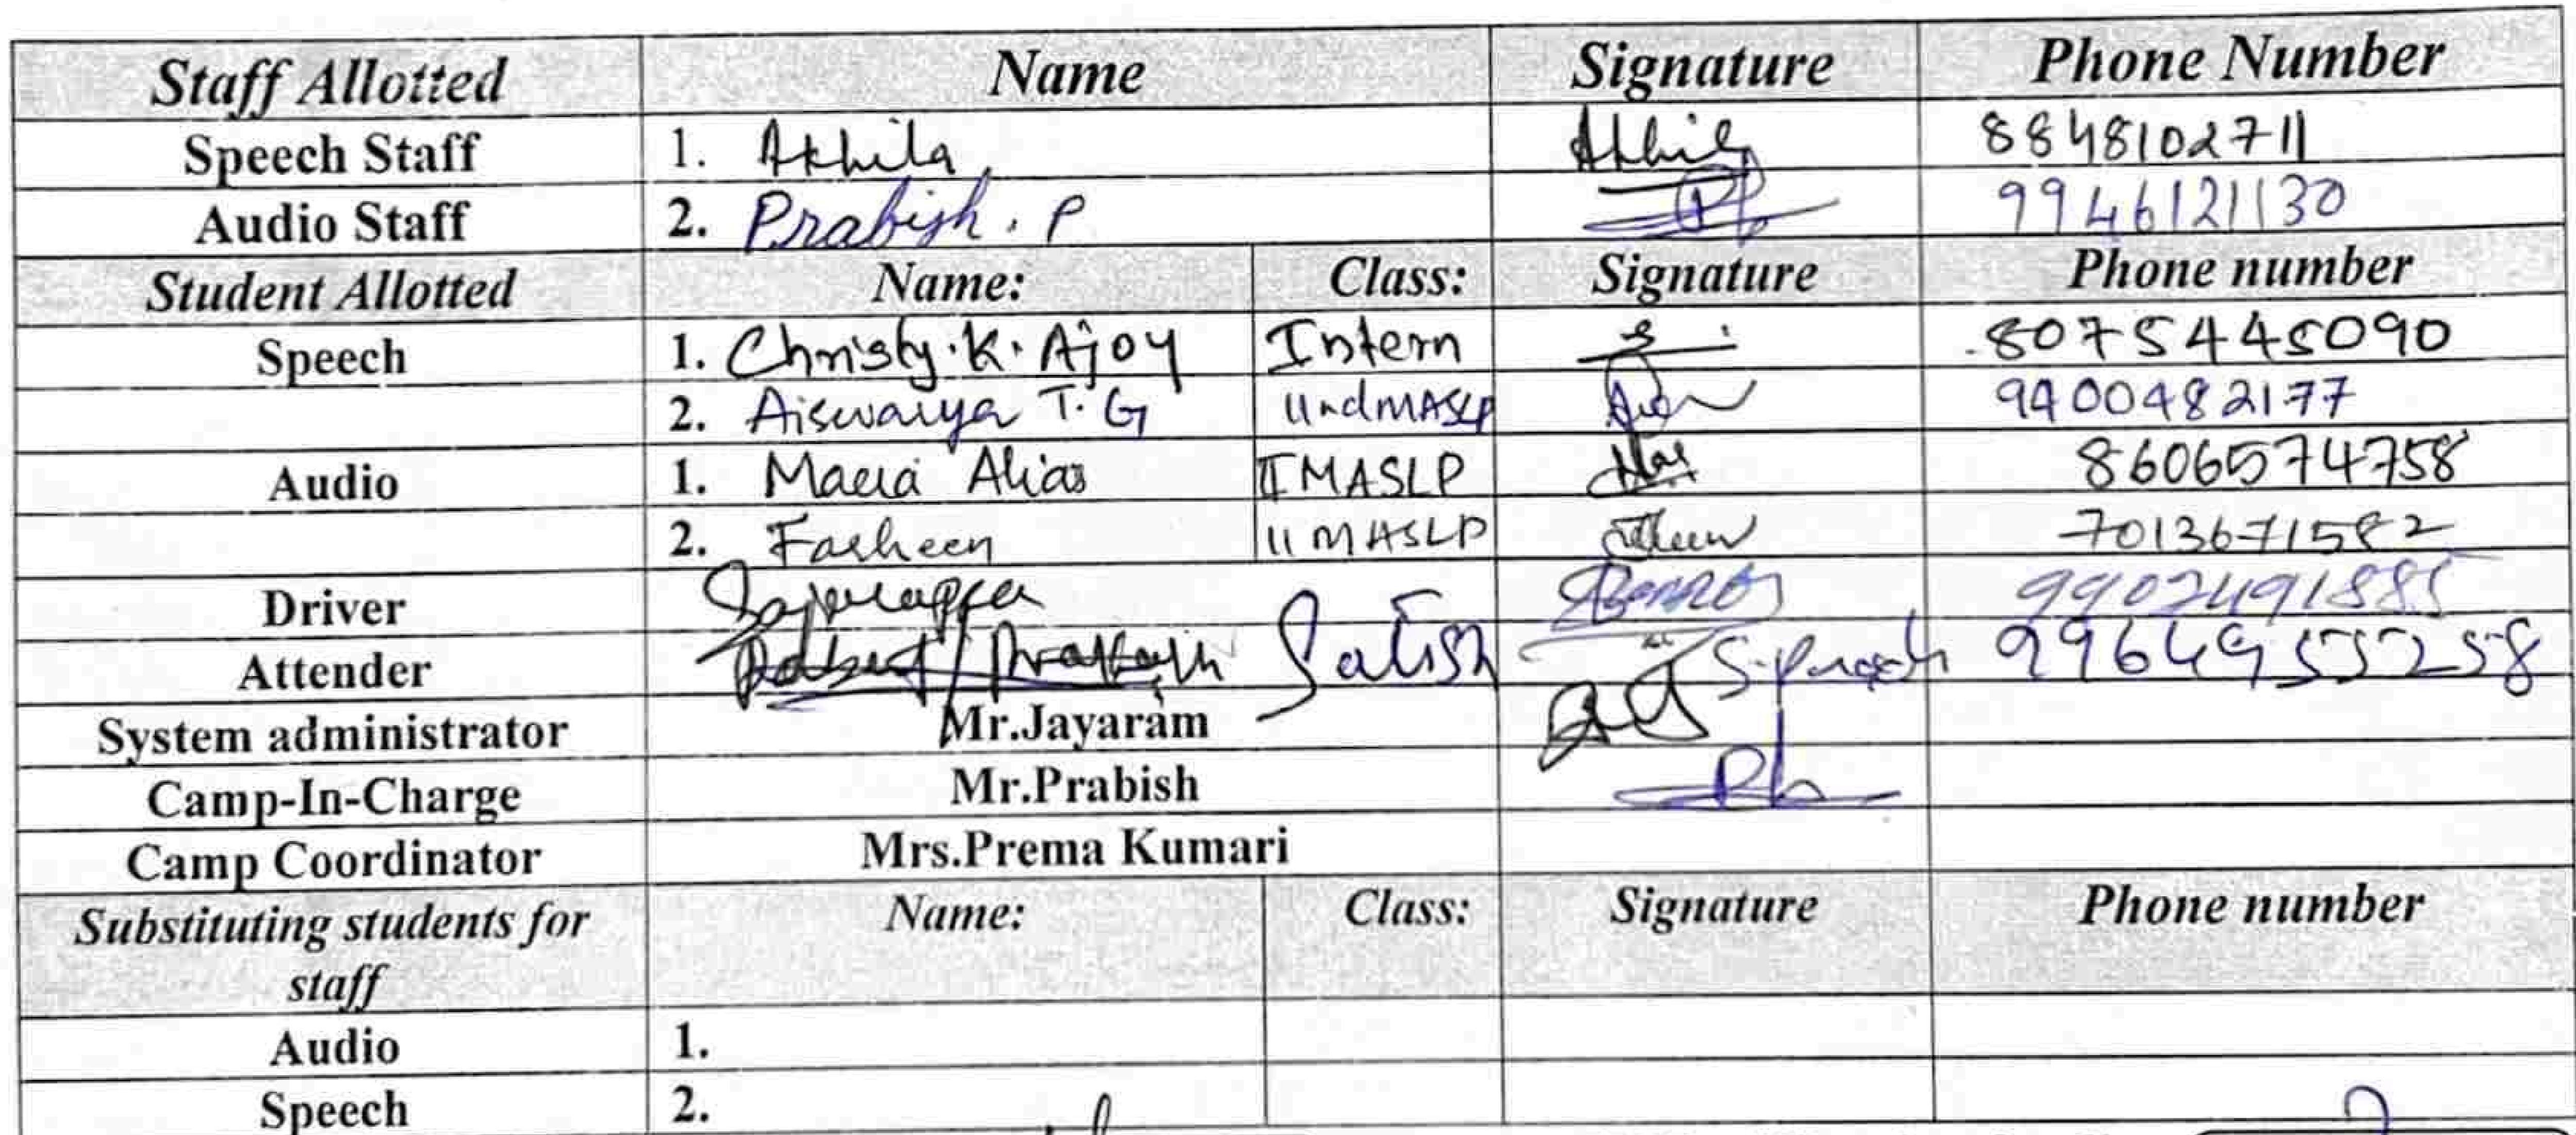 Staff Allotted Name Signature Phone Number
Speech Staff 1. Akhila Akhila 8848102711
Audio Staff 2. Prabish. P 9946121130
Student Allotted Name: Class: Signature Phone number
Speech 1. Christy.K.Ajoy Intern 8075445090
2. Aiswarya T.G IIndMASLP 9400482177
Audio 1. Maria Alias IMASLP 8606574758
2. Fasheen II MASLP 7013671582
Driver 9902491885
Attender Prakash Satish S.prakash
System administrator Mr.Jayaram
Camp-In-Charge Mr.Prabish
Camp Coordinator Mrs.Prema Kumari
Substituting students for Name: Class: Signature Phone number
staff
Audio 1.
Speech 2.